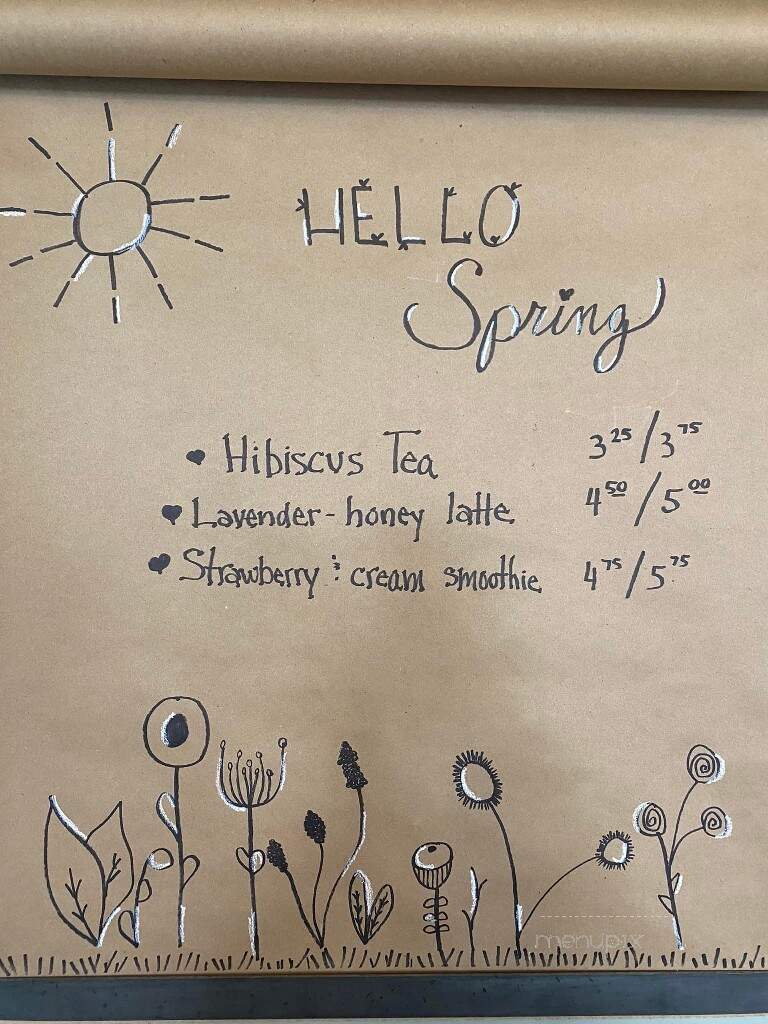 HELLO
Spring
Hibiscus Tea 3 25 / 3 75
Lavender-honey latte 4 50 / 5 00
Strawberry & cream smoothie 4 75 / 5 75
menupix